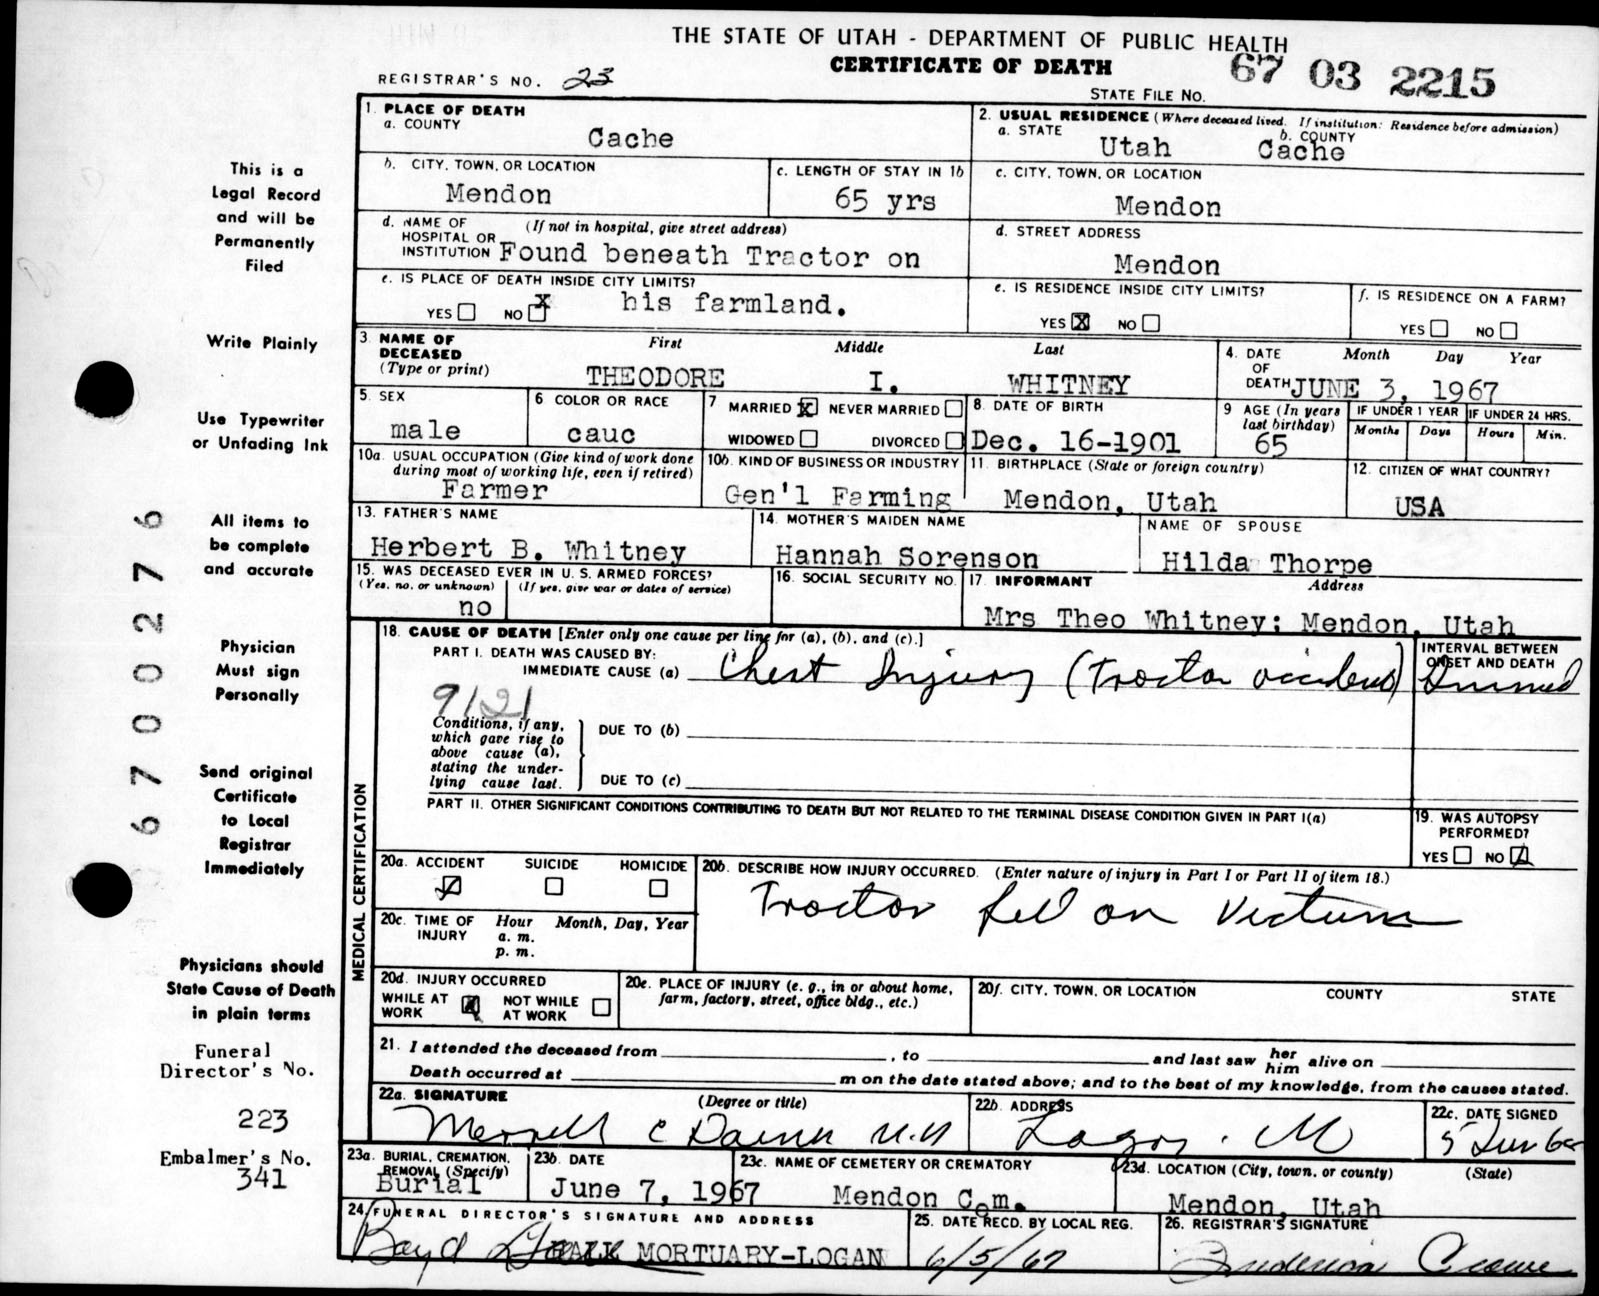 THE STATE OF UTAH - DEPARTMENT OF PUBLIC HEALTH
CERTIFICATE OF DEATH
REGISTRAR'S NO. 23
STATE FILE NO. 67 03 2215
This is a
Legal Record
and will be
Permanently
Filed
Write Plainly
Use Typewriter
or Unfading Ink
All items to
be complete
and accurate
Physician
Must sign
Personally
Send original
Certificate
to Local
Registrar
Immediately
Physicians should
State Cause of Death
in plain terms
Funeral
Director's No.
223
Embalmer's No.
341
6700276
1. PLACE OF DEATH
a. COUNTY
Cache
2. USUAL RESIDENCE (Where deceased lived. If institution: Residence before admission)
a. STATE b. COUNTY
Utah Cache
b. CITY, TOWN, OR LOCATION
Mendon
c. LENGTH OF STAY IN 1b
65 yrs
c. CITY, TOWN, OR LOCATION
Mendon
d. NAME OF HOSPITAL OR INSTITUTION (If not in hospital, give street address)
Found beneath Tractor on
his farmland.
d. STREET ADDRESS
Mendon
e. IS PLACE OF DEATH INSIDE CITY LIMITS?
YES NO X
e. IS RESIDENCE INSIDE CITY LIMITS?
YES X NO
f. IS RESIDENCE ON A FARM?
YES NO
3. NAME OF DECEASED (Type or print)
First Middle Last
THEODORE I. WHITNEY
4. DATE OF DEATH Month Day Year
JUNE 3, 1967
5. SEX
male
6 COLOR OR RACE
cauc
7 MARRIED X NEVER MARRIED
WIDOWED DIVORCED
8. DATE OF BIRTH
Dec. 16-1901
9 AGE (In years last birthday)
65
IF UNDER 1 YEAR IF UNDER 24 HRS.
Months Days Hours Min.
10a. USUAL OCCUPATION (Give kind of work done during most of working life, even if retired)
Farmer
10b. KIND OF BUSINESS OR INDUSTRY
Gen'l Farming
11. BIRTHPLACE (State or foreign country)
Mendon, Utah
12. CITIZEN OF WHAT COUNTRY?
USA
13. FATHER'S NAME
Herbert B. Whitney
14. MOTHER'S MAIDEN NAME
Hannah Sorenson
NAME OF SPOUSE
Hilda Thorpe
15. WAS DECEASED EVER IN U. S. ARMED FORCES?
(Yes, no, or unknown) (If yes, give war or dates of service)
no
16. SOCIAL SECURITY NO.
17. INFORMANT Address
Mrs Theo Whitney: Mendon, Utah
MEDICAL CERTIFICATION
18. CAUSE OF DEATH [Enter only one cause per line for (a), (b), and (c).]
PART I. DEATH WAS CAUSED BY:
IMMEDIATE CAUSE (a) Chest Injury (Tractor accident)
INTERVAL BETWEEN ONSET AND DEATH
9121
Conditions, if any, which gave rise to above cause (a), stating the underlying cause last.
DUE TO (b)
DUE TO (c)
PART II. OTHER SIGNIFICANT CONDITIONS CONTRIBUTING TO DEATH BUT NOT RELATED TO THE TERMINAL DISEASE CONDITION GIVEN IN PART I(a)
19. WAS AUTOPSY PERFORMED?
YES NO
20a. ACCIDENT SUICIDE HOMICIDE
20b. DESCRIBE HOW INJURY OCCURRED. (Enter nature of injury in Part I or Part II of item 18.)
Tractor fell on Victim
20c. TIME OF INJURY Hour Month, Day, Year
a. m.
p. m.
20d. INJURY OCCURRED
WHILE AT WORK X NOT WHILE AT WORK
20e. PLACE OF INJURY (e. g., in or about home, farm, factory, street, office bldg., etc.)
20f. CITY, TOWN, OR LOCATION COUNTY STATE
21. I attended the deceased from , to and last saw her him alive on
Death occurred at m on the date stated above; and to the best of my knowledge, from the causes stated.
22a. SIGNATURE (Degree or title)
Merrell C
22b. ADDRESS
Logan
22c. DATE SIGNED
23a. BURIAL, CREMATION, REMOVAL (Specify)
Burial
23b. DATE
June 7, 1967
23c. NAME OF CEMETERY OR CREMATORY
Mendon Cem.
23d. LOCATION (City, town, or county) (State)
Mendon, Utah
24. FUNERAL DIRECTOR'S SIGNATURE AND ADDRESS
Boyd MORTUARY-LOGAN
25. DATE RECD. BY LOCAL REG.
6/5/67
26. REGISTRAR'S SIGNATURE